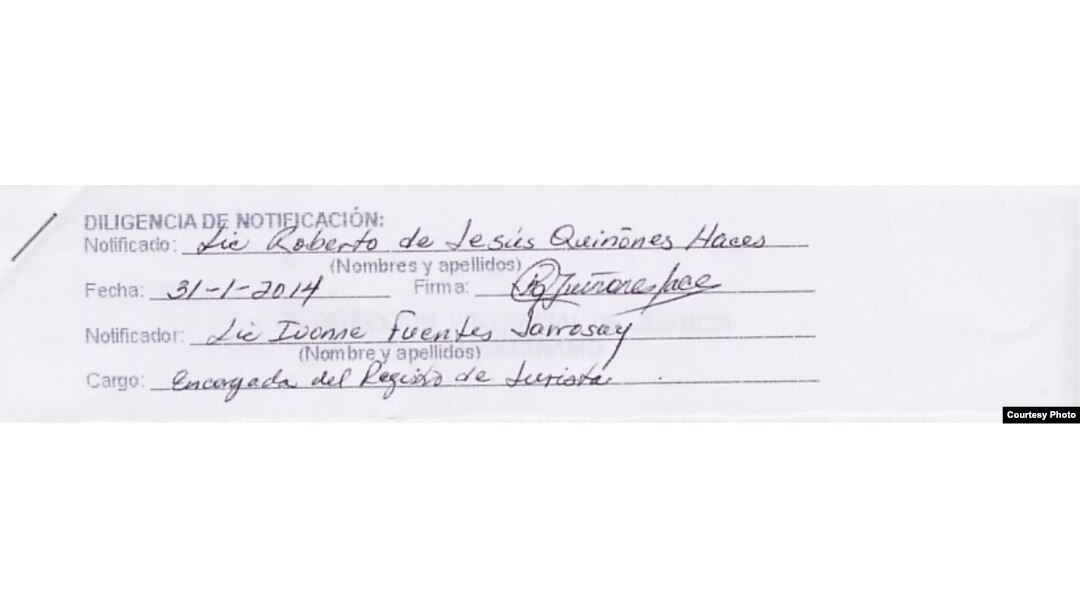 DILIGENCIA DE NOTIFICACIÓN:
Notificado: Lic Roberto de Jesús Quiñones Haces
(Nombres y apellidos)
Fecha: 31-1-2014 Firma: RQuiñonesHace
Notificador: Lic Ivonne Fuentes Jarrosay
(Nombre y apellidos)
Cargo: Encargada del Registro de Jurista
Courtesy Photo